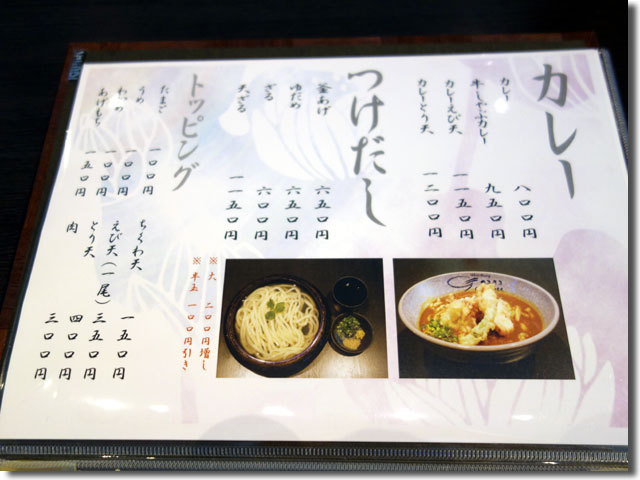 カレー
カレー 八〇〇円
牛しゃぶカレー 九五〇円
カレーえび天 一一五〇円
カレーとり天 一二〇〇円
つけだし
釜あげ 六五〇円
ゆだめ 六五〇円
ざる 六〇〇円
天ざる 一一五〇円
※大 二〇〇円増し
※半玉 一〇〇円引き
トッピング
たまご 一〇〇円
うめ 一〇〇円
わかめ 一〇〇円
あげもち 一五〇円
ちくわ天 一五〇円
えび天(一尾) 三五〇円
とり天 四〇〇円
肉 三〇〇円